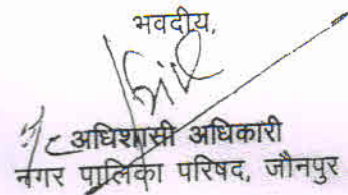 भवदीय,
अधिशासी अधिकारी
नगर पालिका परिषद, जौनपुर